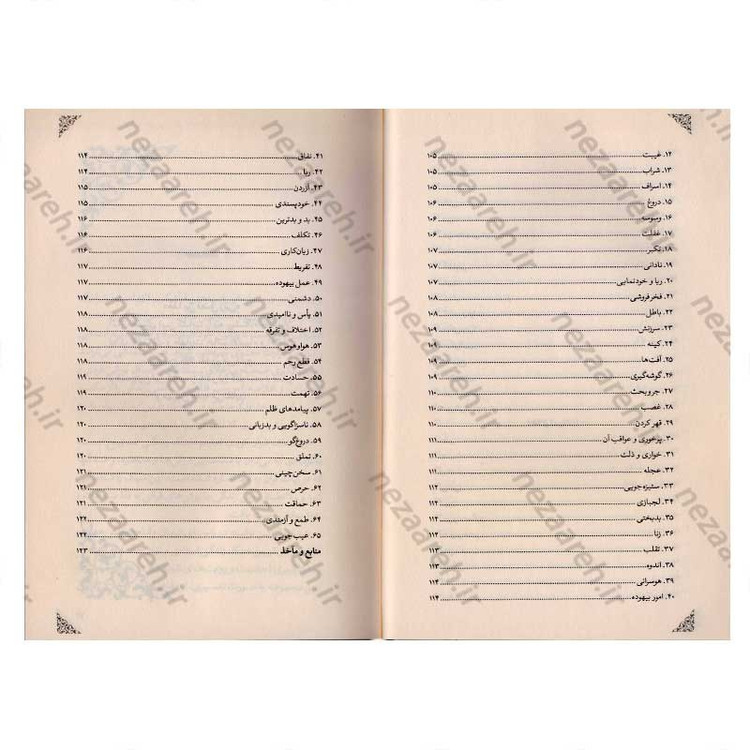 ۱۲. غیبت ۱۰۵
۱۳. شراب ۱۰۵
۱۴. اسراف ۱۰۵
۱۵. دروغ ۱۰۶
۱۶. وسوسه ۱۰۶
۱۷. غفلت ۱۰۶
۱۸. تکبر ۱۰۷
۱۹. نادانی ۱۰۷
۲۰. ریا و خودنمایی ۱۰۷
۲۱. فخرفروشی ۱۰۸
۲۲. باطل ۱۰۸
۲۳. سرزنش ۱۰۹
۲۴. کینه ۱۰۹
۲۵. آفت‌ها ۱۰۹
۲۶. گوشه‌گیری ۱۰۹
۲۷. جروبحث ۱۱۰
۲۸. غصب ۱۱۰
۲۹. قهر کردن ۱۱۰
۳۰. پرخوری و عواقب آن ۱۱۱
۳۱. خواری و ذلت ۱۱۱
۳۲. عجله ۱۱۱
۳۳. ستیزه‌جویی ۱۱۲
۳۴. لجبازی ۱۱۲
۳۵. بدبختی ۱۱۲
۳۶. زنا ۱۱۲
۳۷. تقلب ۱۱۲
۳۸. اندوه ۱۱۳
۳۹. هوسرانی ۱۱۴
۴۰. امور بیهوده ۱۱۴
۴۱. نفاق ۱۱۴
۴۲. ربا ۱۱۴
۴۳. آزردن ۱۱۵
۴۴. خودپسندی ۱۱۵
۴۵. بد و بدترین ۱۱۶
۴۶. تکلف ۱۱۶
۴۷. زیان‌کاری ۱۱۶
۴۸. تفریط ۱۱۷
۴۹. عمل بیهوده ۱۱۷
۵۰. دشمنی ۱۱۷
۵۱. یأس و ناامیدی ۱۱۸
۵۲. اختلاف و تفرقه ۱۱۸
۵۳. هواوهوس ۱۱۸
۵۴. قطع رحم ۱۱۸
۵۵. حسادت ۱۱۹
۵۶. تهمت ۱۱۹
۵۷. پیامدهای ظلم ۱۲۰
۵۸. ناسزاگویی و بدزبانی ۱۲۰
۵۹. دروغ‌گو ۱۲۰
۶۰. تملق ۱۲۰
۶۱. سخن‌چینی ۱۲۱
۶۲. حرص ۱۲۱
۶۳. حماقت ۱۲۱
۶۴. طمع و آزمندی ۱۲۲
۶۵. عیب‌جویی ۱۲۲
منابع و ماخذ ۱۲۳
nezaareh.ir